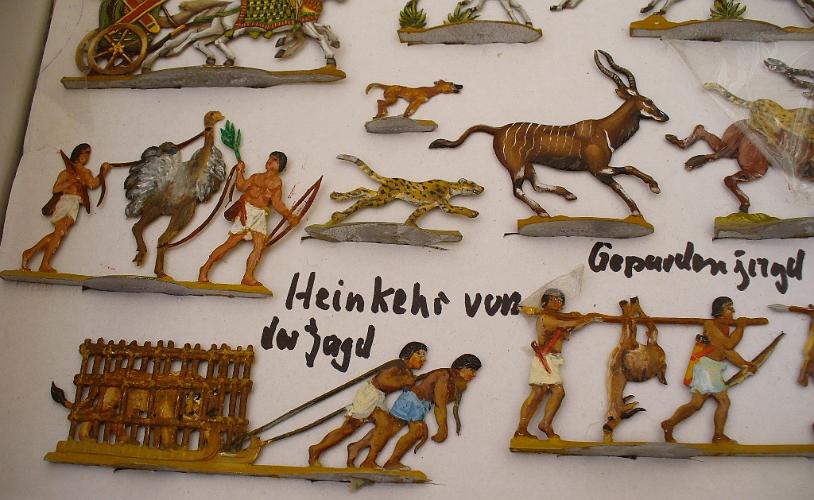 Gepardenjagd
Heinkehr von
der Jagd